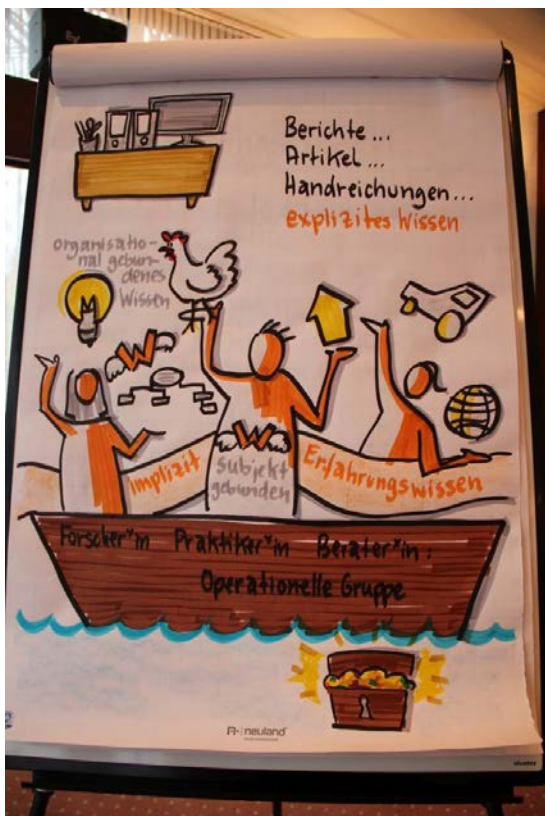 Berichte...
Artikel...
Handreichungen...
explizites Wissen
organisatio-
nal gebun-
denes
Wissen
W
W
Implizit
subjekt
gebunden
Erfahrungswissen
Forscher*in Praktiker*in Berater*in:
Operationelle Gruppe
neuland